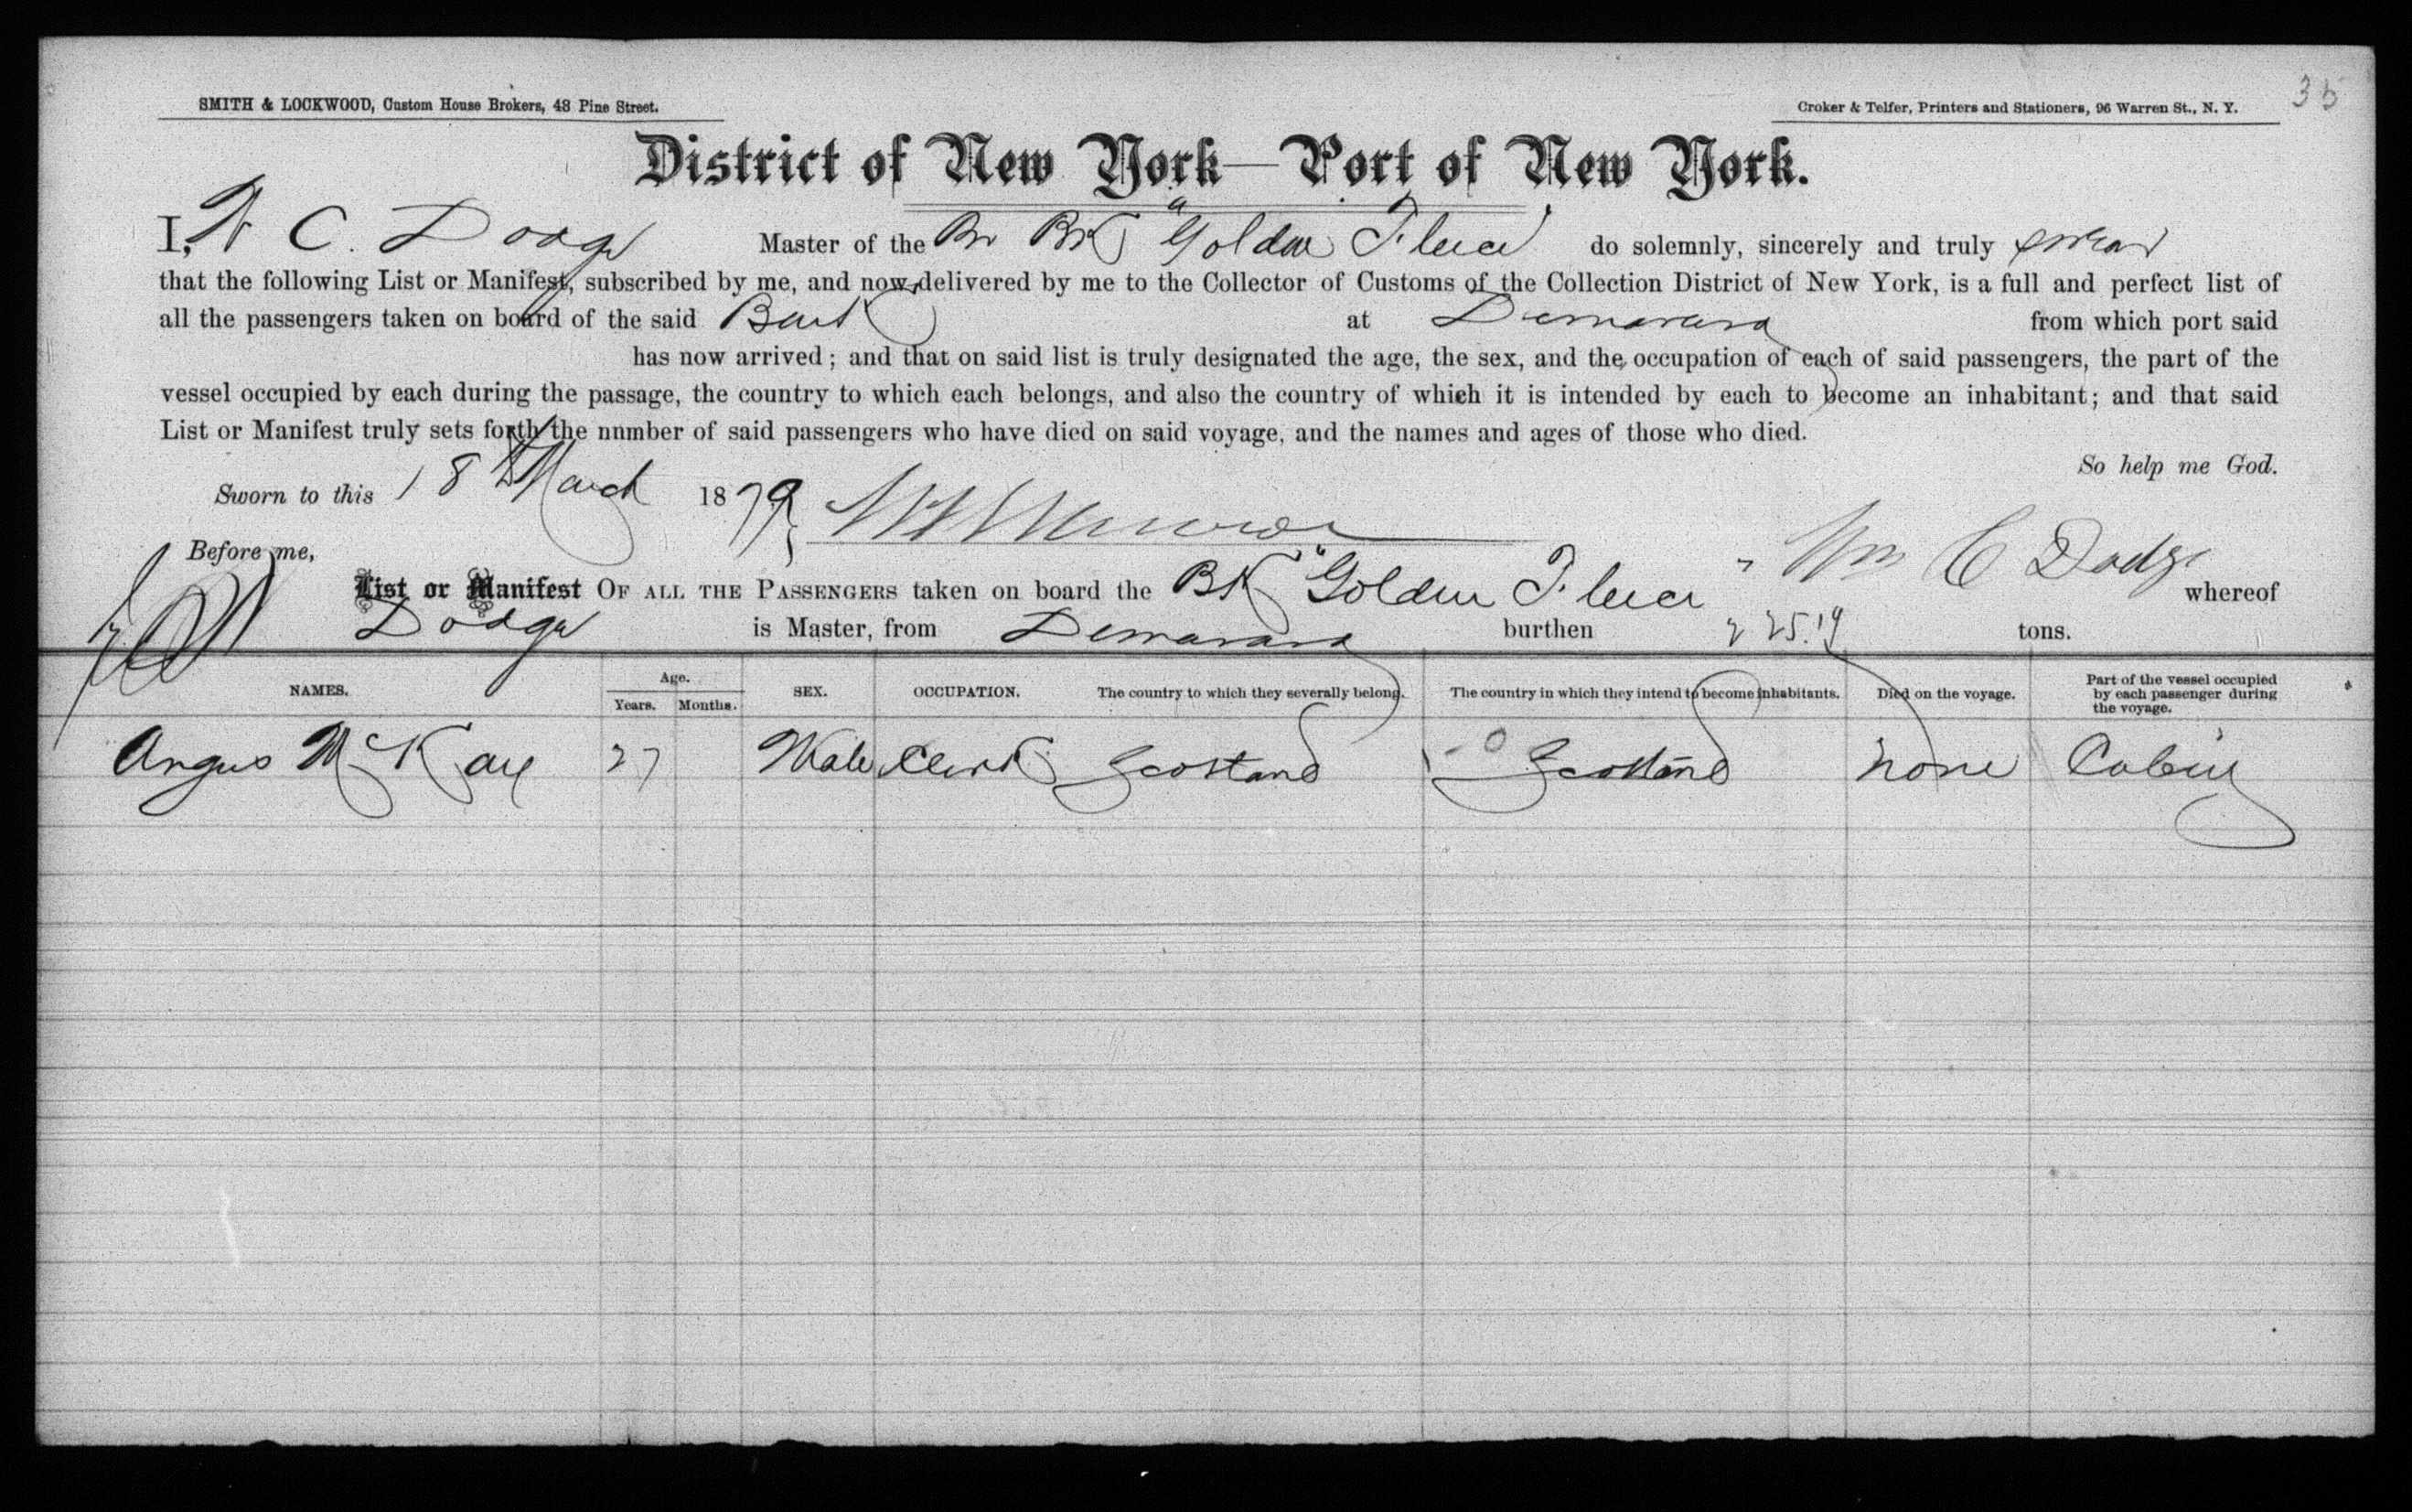 SMITH & LOCKWOOD, Custom House Brokers, 48 Pine Street.
Croker & Telfer, Printers and Stationers, 96 Warren St., N. Y.
35
District of New York—Port of New York.
I, W C. Dodge Master of the Br Bk "Golden Fleece" do solemnly, sincerely and truly swear
that the following List or Manifest, subscribed by me, and now delivered by me to the Collector of Customs of the Collection District of New York, is a full and perfect list of
all the passengers taken on board of the said Bark at Demarara from which port said
has now arrived; and that on said list is truly designated the age, the sex, and the occupation of each of said passengers, the part of the
vessel occupied by each during the passage, the country to which each belongs, and also the country of which it is intended by each to become an inhabitant; and that said
List or Manifest truly sets forth the number of said passengers who have died on said voyage, and the names and ages of those who died.
So help me God.
Sworn to this 18th March 1879
Before me,
Wm C Dodge
List or Manifest OF ALL THE PASSENGERS taken on board the BK "Golden Fleece" whereof
Dodge is Master, from Demarara burthen 225.19 tons.
NAMES. Age. Years. Months. SEX. OCCUPATION. The country to which they severally belong. The country in which they intend to become inhabitants. Died on the voyage. Part of the vessel occupied by each passenger during the voyage.
Angus McKay 27 Male Clerk Scotland Scotland None Cabin